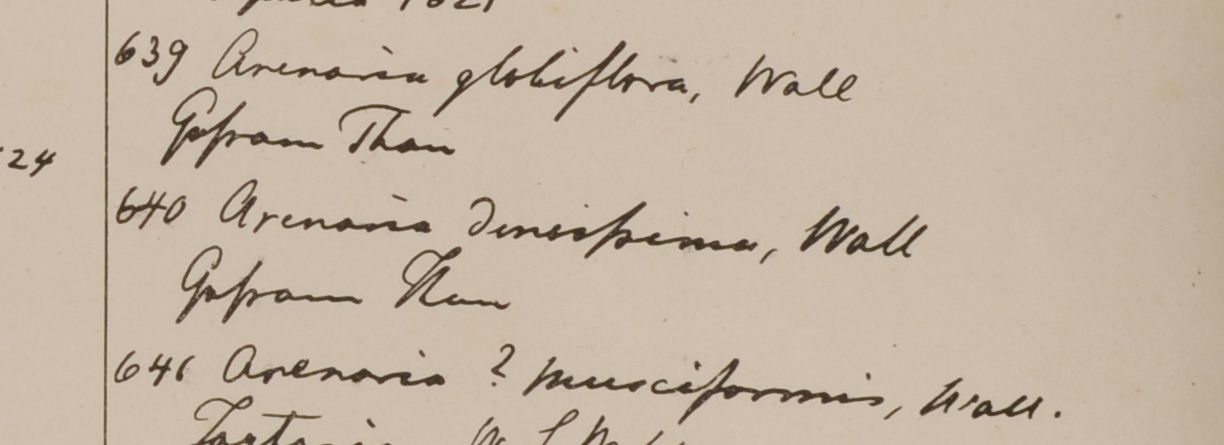 1821
639 Arenaria globiflora, Wall
Gossam Than
24
640 Arenaria densissima, Wall
Gossam Than
641 Arenaria ? musciformis, Wall.